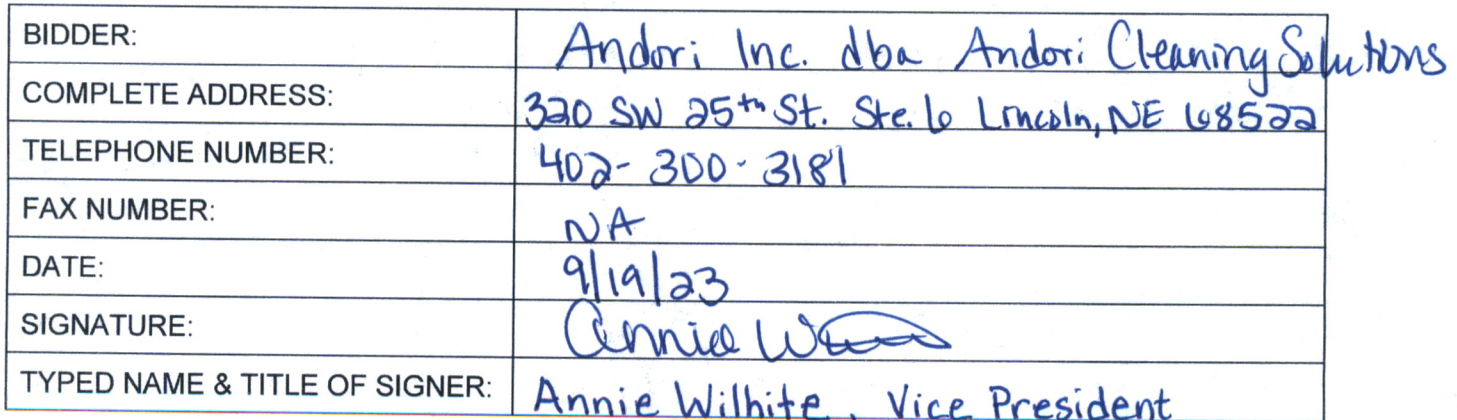 BIDDER: Andori Inc. dba Andori Cleaning Solutions
COMPLETE ADDRESS: 320 SW 25th St. Ste. 6 Lincoln, NE 68522
TELEPHONE NUMBER: 402-300-3181
FAX NUMBER: NA
DATE: 9/19/23
SIGNATURE: Annie W
TYPED NAME & TITLE OF SIGNER: Annie Wilhite, Vice President